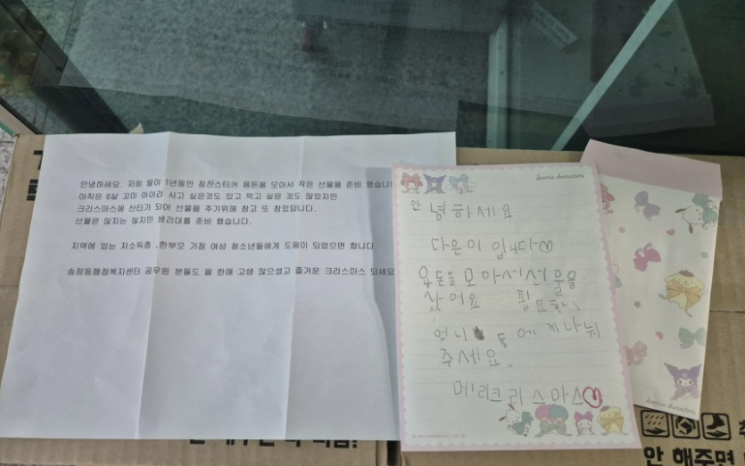 안녕하세요. 저희 딸이 1년동안 칭찬스티커 용돈을 모아서 작은 선물을 준비 했습니
아직은 6살 꼬마 아이라 사고 싶은것도 있고 먹고 싶은 것도 많았지만
크리스마스에 산타가 되어 선물을 주기위해 참고 또 참았답니다.
선물은 많지는 않지만 생리대를 준비 했습니다.
지역에 있는 저소득층 ,한부모 가정 여성 청소년들에게 도움이 되었으면 합니다.
송정동행정복지센터 공무원 분들도 올 한해 고생 많으셨고 즐거운 크리스마스 되세요
안녕하세요
다은이 입니다♡
용돈을 모아서 선물을
샀어요 필요한
언니 에게 나눠
주세요.
메리크리스마스♡
Sanrio characters
Sanrio characters
안 해주면